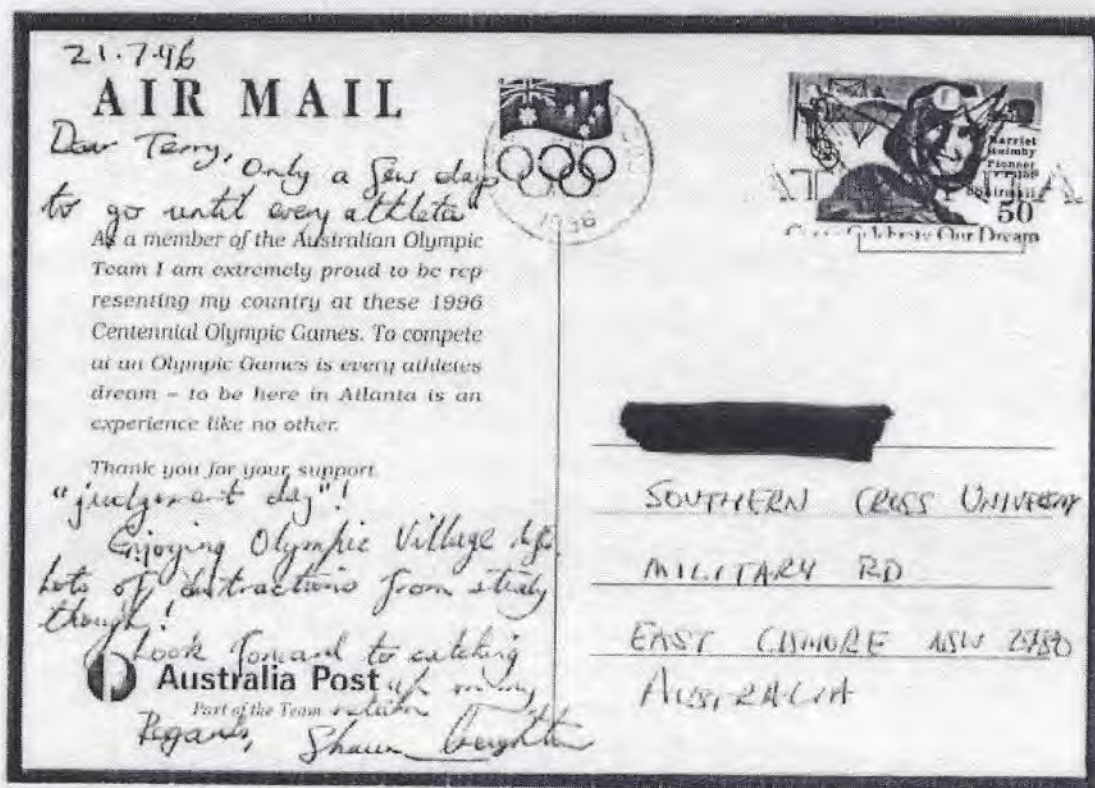 21.7.96
AIR MAIL
Dear Terry,
Only a few days
to go until every athlete's
As a member of the Australian Olympic
Team I am extremely proud to be rep-
resenting my country at these 1996
Centennial Olympic Games. To compete
at an Olympic Games is every athletes
dream – to be here in Atlanta is an
experience like no other.
Thank you for your support.
"judgement day"!
Enjoying Olympic Village life.
Lots of distractions from study
though!
Look forward to catching
up on my
return
Australia Post
Part of the Team
Regards, Shaun Creighton
1996
Harriet
Quimby
Pioneer
Pilot
50
Celebrate Our Dream
SOUTHERN CROSS UNIVERSITY
MILITARY RD
EAST LISMORE NSW 2480
AUSTRALIA